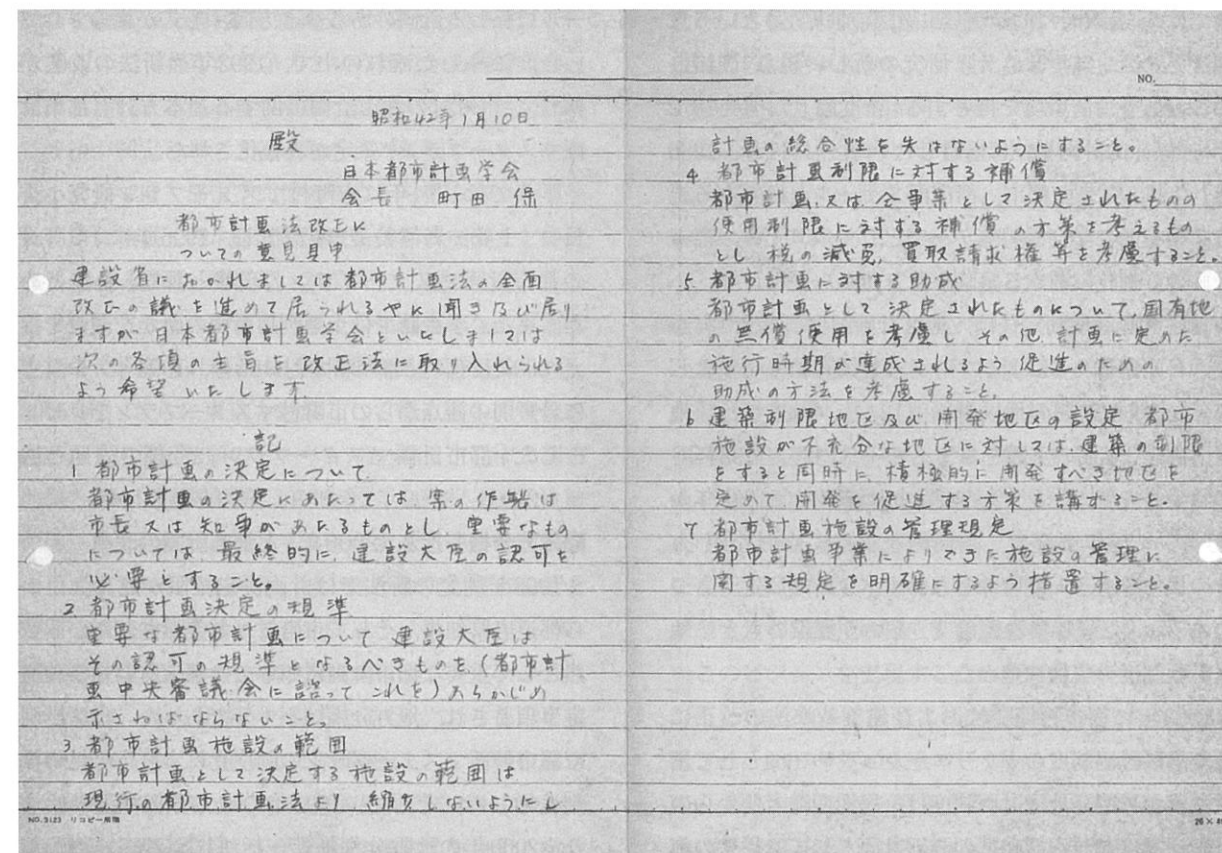 NO.
昭和42年1月10日
殿
日本都市計画学会
会長 町田 保
都市計画法改正に
ついての意見具申
建設省におかれましては都市計画法の全面
改正の議を進めて居られるやに聞き及び居り
ますが日本都市計画学会といたしましては
次の各項の主旨を改正法に取り入れられる
よう希望いたします。
記
1 都市計画の決定について
都市計画の決定にあたっては、案の作製は
市長又は知事があたるものとし、重要なもの
については、最終的に、建設大臣の認可を
必要とすること。
2 都市計画決定の規準
重要な都市計画について 建設大臣は
その認可の規準となるべきものを(都市計
画中央審議会に諮ってこれを)あらかじめ
示さねばならないこと。
3 都市計画施設の範囲
都市計画として決定する施設の範囲は
現行の都市計画法より 縮少しないようにし
計画の総合性を失はないようにすること。
4 都市計画制限に対する補償
都市計画、又は仝事業として決定されたものの
使用制限に対する補償の方策を考えるもの
とし 税の減免、買取請求権等を考慮すること。
5 都市計画に対する助成
都市計画として決定されたものについて、国有地
の無償使用を考慮し その他 計画に定めた
施行時期が達成されるよう 促進のための
助成の方法を考慮すること。
6 建築制限地区及び開発地区の設定 都市
施設が不充分な地区に対しては、建築の制限
をすると同時に、積極的に開発すべき地区を
定めて 開発を促進する方策を講ずること。
7 都市計画施設の管理規定
都市計画事業によりできた施設の管理に
関する規定を明確にするよう措置すること。
NO.3123 リコピー用箋